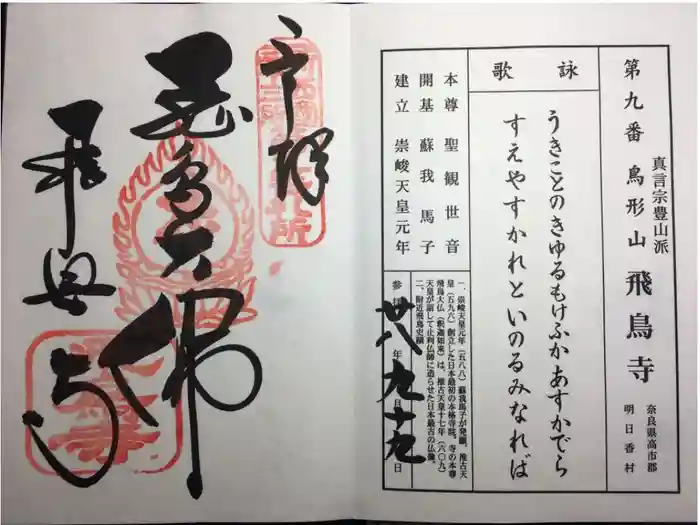 第九番 鳥形山 飛鳥寺
真言宗豊山派
奈良県高市郡
明日香村
詠歌
うきことのきゆるもけふかあすかでら
すえやすかれといのるみなれば
本尊 聖観世音
開基 蘇我馬子
建立 崇峻天皇元年
一、崇峻天皇元年（五八八）蘇我馬子が発願、推古天
皇（五九六）創立した日本最初の本格寺院。寺の本尊
飛鳥大仏（釈迦如来）は、推古天皇十七年（六〇九）
天皇が詔して止利仏師に造らせた日本最古の仏像。
二、附近飛鳥史蹟
廿八 年 九 月 十九 日
奉拝
飛鳥大仏